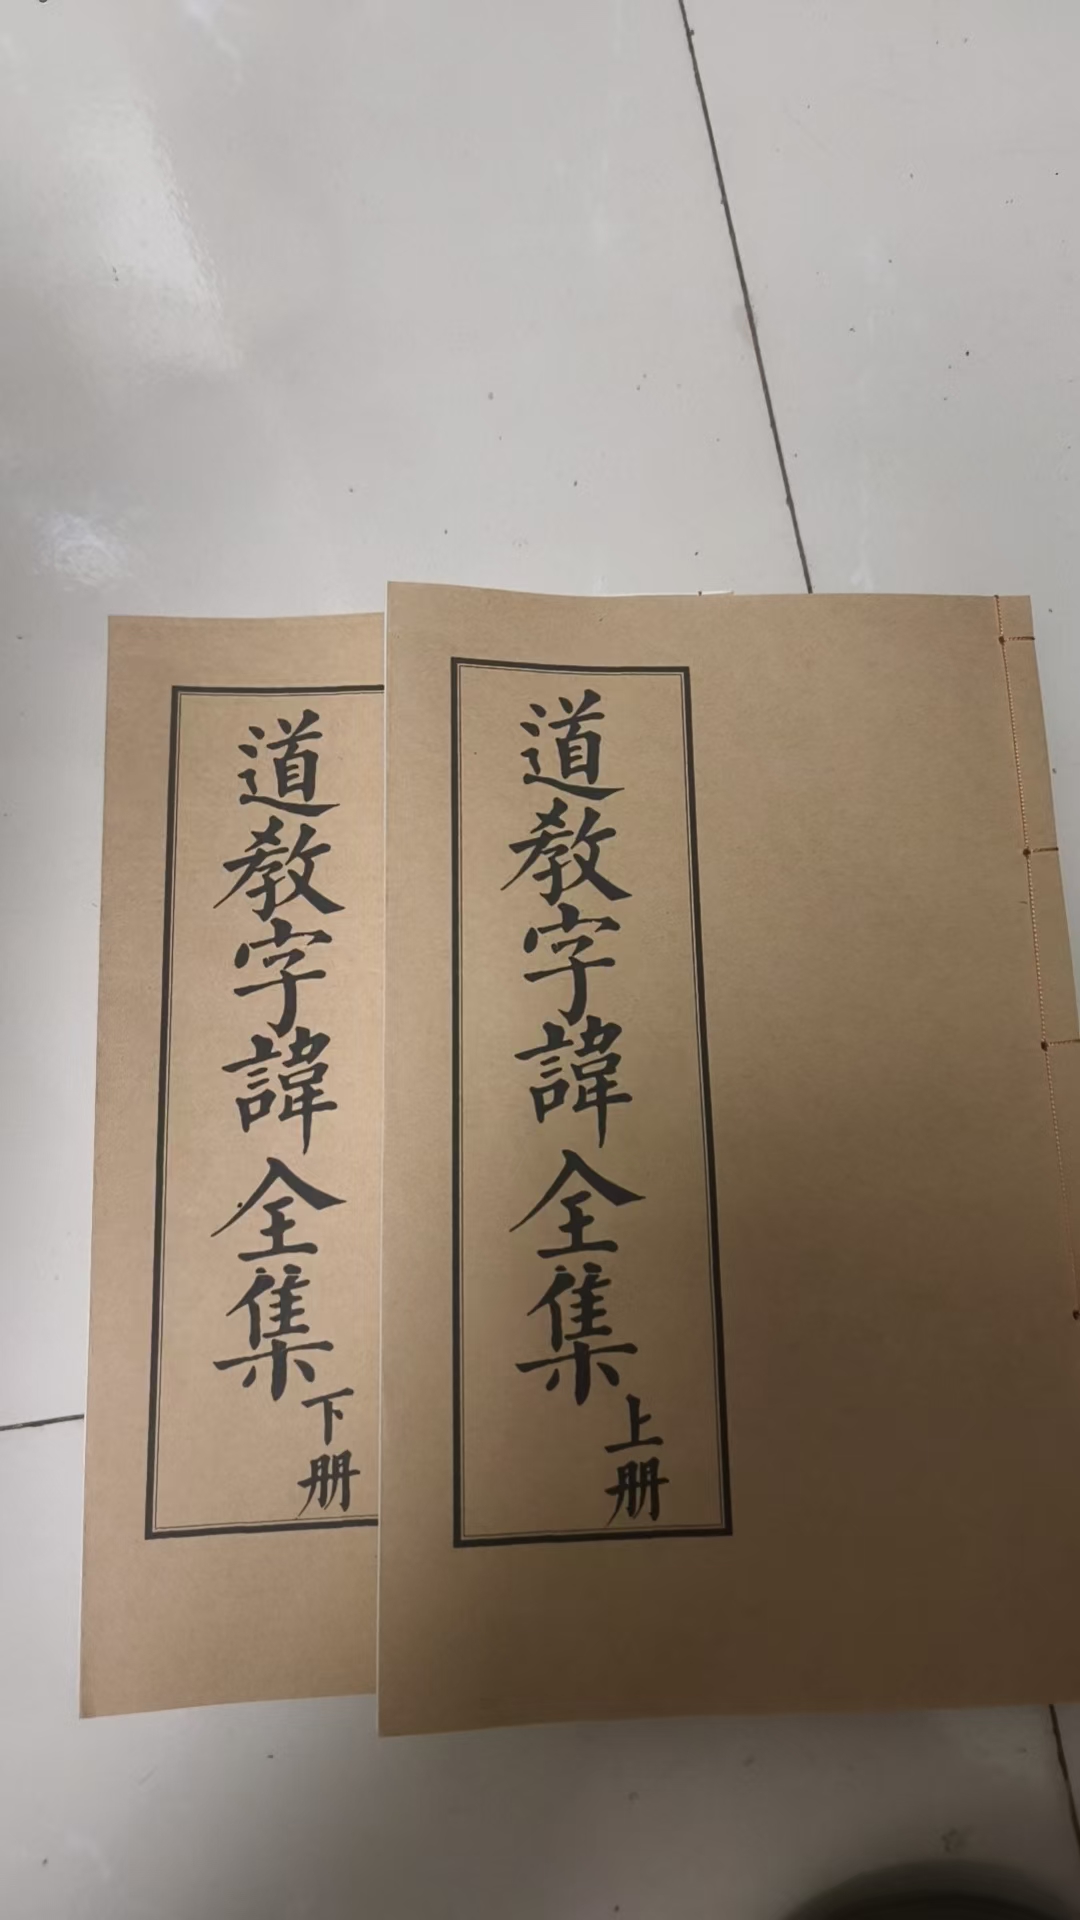 道教字諱全集
上册
道教字諱全集
下册